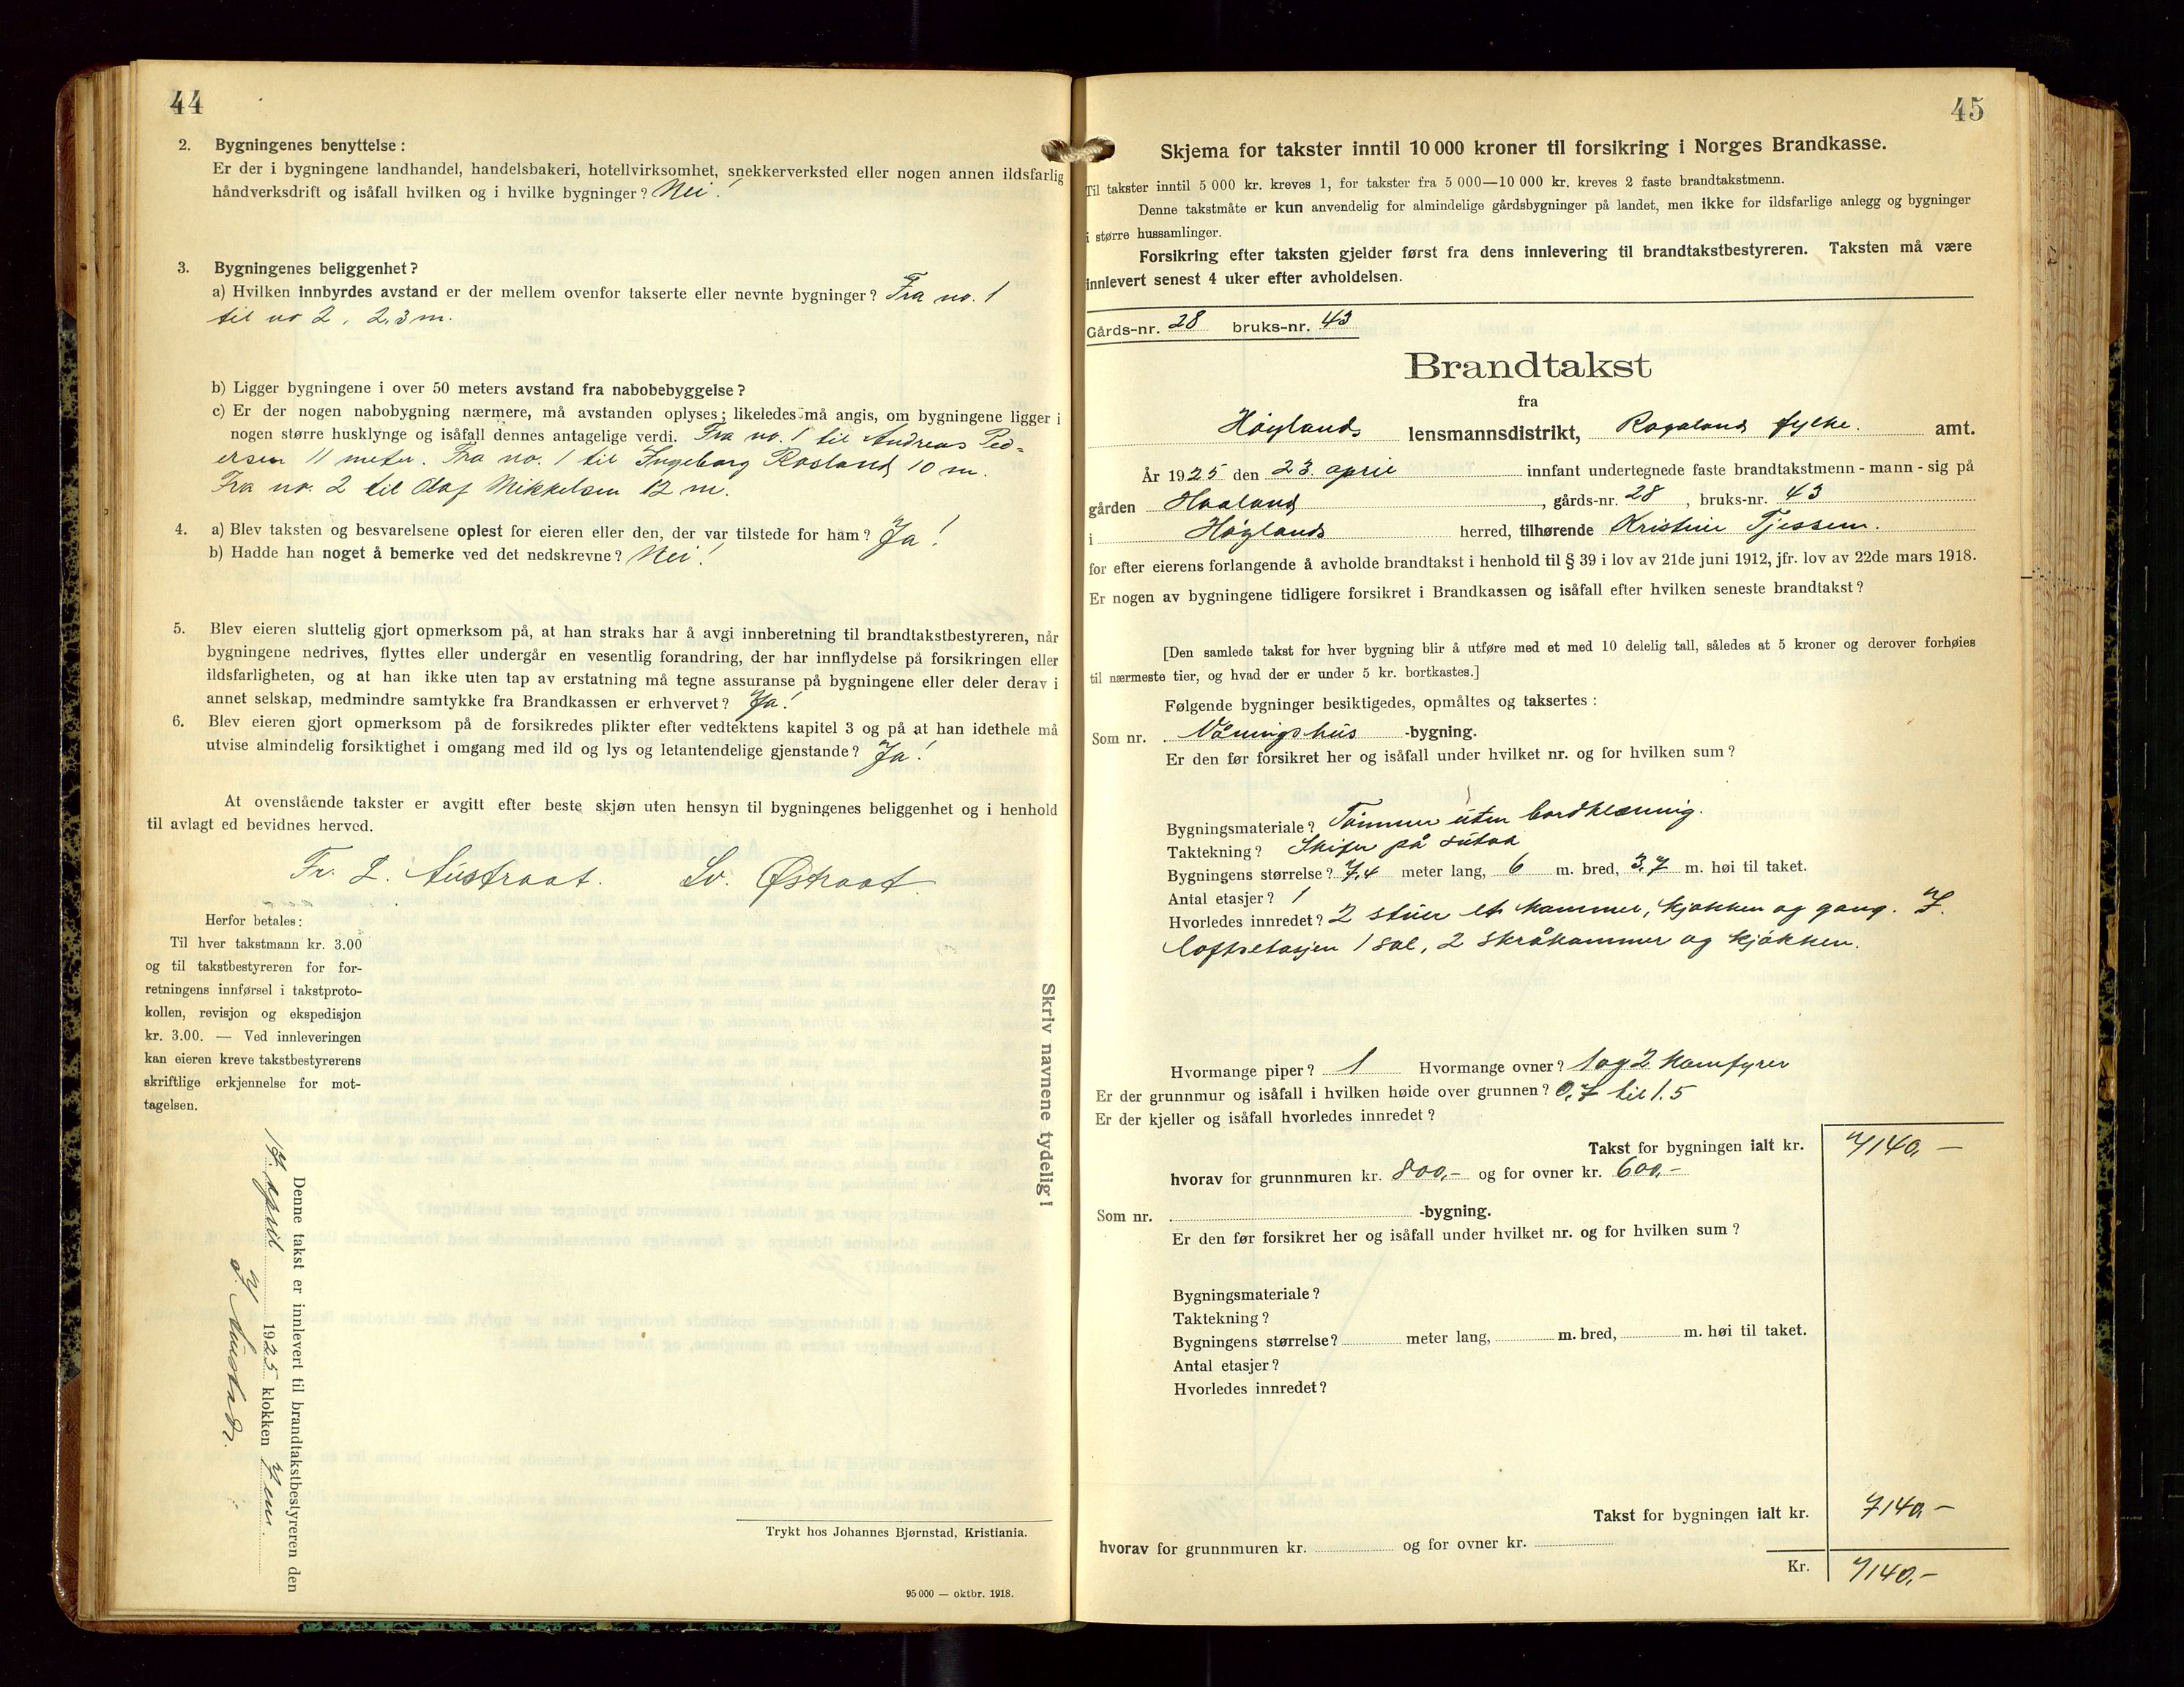 44
2. Bygningenes benyttelse:
Er der i bygningene landhandel, handelsbakeri, hotellvirksomhet, snekkerverksted eller nogen annen ildsfarlig
håndverksdrift og isåfall hvilken og i hvilke bygninger? Nei!
3. Bygningenes beliggenhet?
a) Hvilken innbyrdes avstand er der mellem ovenfor takserte eller nevnte bygninger? Fra no. 1
til no 2, 2,3 m.
b) Ligger bygningene i over 50 meters avstand fra nabobebyggelse?
c) Er der nogen nabobygning nærmere, må avstanden oplyses; likeledes må angis, om bygningene ligger i
nogen større husklynge og isåfall dennes antagelige verdi. Fra no. 1 til Andreas Ped=
ersen 11 meter. Fra no. 1 til Ingeborg Rosland 10 m.
Fra no. 2 til Olaf Mikkelsen 12 m.
4. a) Blev taksten og besvarelsene oplest for eieren eller den, der var tilstede for ham? Ja!
b) Hadde han noget å bemerke ved det nedskrevne? Nei!
5. Blev eieren sluttelig gjort opmerksom på, at han straks har å avgi innberetning til brandtakstbestyreren, når
bygningene nedrives, flyttes eller undergår en vesentlig forandring, der har innflydelse på forsikringen eller
ildsfarligheten, og at han ikke uten tap av erstatning må tegne assuranse på bygningene eller deler derav i
annet selskap, medmindre samtykke fra Brandkassen er erhvervet? Ja!
6. Blev eieren gjort opmerksom på de forsikredes plikter efter vedtektens kapitel 3 og på at han idethele må
utvise almindelig forsiktighet i omgang med ild og lys og letantendelige gjenstande? Ja!
At ovenstående takster er avgitt efter beste skjøn uten hensyn til bygningenes beliggenhet og i henhold
til avlagt ed bevidnes herved.
Fr. L. Austraat. Sv. Østraat
Herfor betales:
Til hver takstmann kr. 3.00
og til takstbestyreren for for-
retningens innførsel i takstproto-
kollen, revisjon og ekspedisjon
kr. 3.00. — Ved innleveringen
kan eieren kreve takstbestyrerens
skriftlige erkjennelse for mot-
tagelsen.
Skriv navnene tydelig!
Denne takst er innlevert til brandtakstbestyreren den
17. april 1925 klokken 7 em.
Trykt hos Johannes Bjørnstad, Kristiania.
95 000 — oktbr. 1918.
45
Skjema for takster inntil 10 000 kroner til forsikring i Norges Brandkasse.
Til takster inntil 5 000 kr. kreves 1, for takster fra 5 000—10 000 kr. kreves 2 faste brandtakstmenn.
Denne takstmåte er kun anvendelig for almindelige gårdsbygninger på landet, men ikke for ildsfarlige anlegg og bygninger
i større hussamlinger.
Forsikring efter taksten gjelder først fra dens innlevering til brandtakstbestyreren. Taksten må være
innlevert senest 4 uker efter avholdelsen.
Gårds-nr. 28 bruks-nr. 43
Brandtakst
fra
Høylands lensmannsdistrikt, Rogaland fylke. amt.
År 1925 den 23. april innfant undertegnede faste brandtakstmenn - mann - sig på
gården Haaland, gårds-nr. 28, bruks-nr. 43
i Høylands herred, tilhørende Kristine Tjessem.
for efter eierens forlangende å avholde brandtakst i henhold til § 39 i lov av 21de juni 1912, jfr. lov av 22de mars 1918.
Er nogen av bygningene tidligere forsikret i Brandkassen og isåfall efter hvilken seneste brandtakst?
[Den samlede takst for hver bygning blir å utføre med et med 10 delelig tall, således at 5 kroner og derover forhøies
til nærmeste tier, og hvad der er under 5 kr. bortkastes.]
Følgende bygninger besiktigedes, opmåltes og taksertes:
Som nr. Våningshus -bygning.
Er den før forsikret her og isåfall under hvilket nr. og for hvilken sum?
Bygningsmateriale? Tømmer uten bordklæning.
Taktekning? Skifer på sutak
Bygningens størrelse? 7,4 meter lang, 6 m. bred, 3,7 m. høi til taket.
Antal etasjer? 1
Hvorledes innredet? 2 stuer et kammer, kjøkken og gang. I.
loftsetasjen 1 sal, 2 skråkammer og kjøkken.
Hvormange piper? 1 Hvormange ovner? 1 og 2 Komfyrer
Er der grunnmur og isåfall i hvilken høide over grunnen? 0,7 til 1.5
Er der kjeller og isåfall hvorledes innredet?
Takst for bygningen ialt kr. 7140,-
hvorav for grunnmuren kr. 800,- og for ovner kr. 600,-
Som nr. -bygning.
Er den før forsikret her og isåfall under hvilket nr. og for hvilken sum?
Bygningsmateriale?
Taktekning?
Bygningens størrelse? meter lang, m. bred, m. høi til taket.
Antal etasjer?
Hvorledes innredet?
Takst for bygningen ialt kr. 7140,-
hvorav for grunnmuren kr. og for ovner kr.
Kr. 7140,-